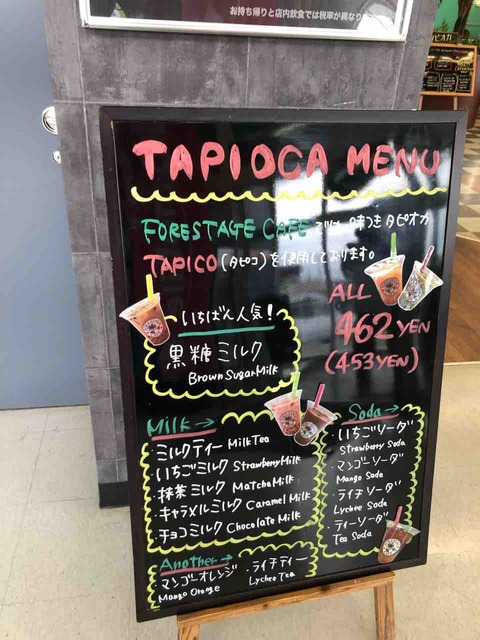 お持ち帰りと店内飲食では税率が異なり
TAPIOCA MENU
FORESTAGE CAFE では 味つきタピオカ
TAPICO(タピコ)を使用しております。
ALL
462 YEN
(453YEN)
いちばん人気!
黒糖ミルク
Brown Sugar Milk
Milk→
・ミルクティー Milk Tea
・いちごミルク Strawberry Milk
・抹茶ミルク Matcha Milk
・キャラメルミルク Caramel Milk
・チョコミルク Chocolate Milk
Soda→
・いちごソーダ
Strawberry Soda
・マンゴーソーダ
Mango Soda
・ライチソーダ
Lychee Soda
・ティーソーダ
Tea Soda
Another→
・マンゴーオレンジ
Mango Orange
・ライチティー
Lychee Tea